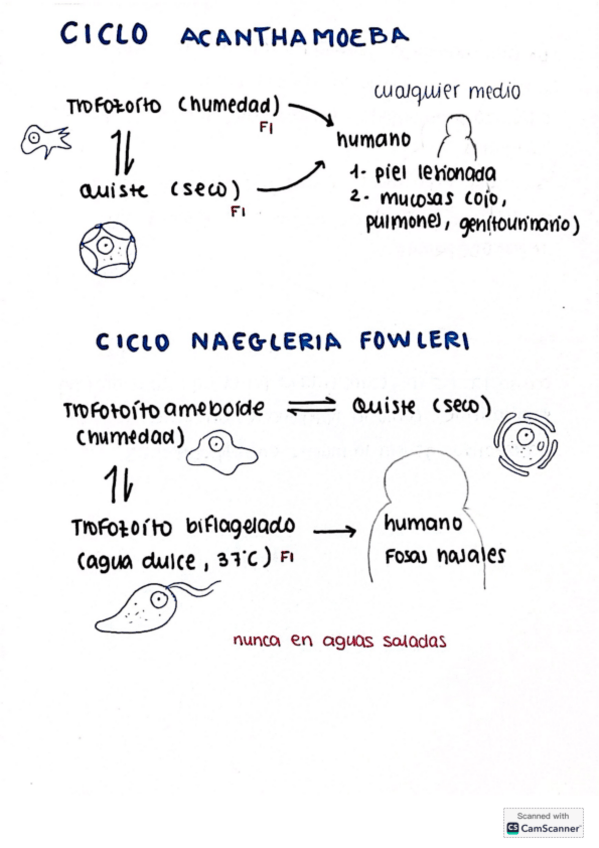 CICLO ACANTHAMOEBA
cualquier medio
Trofozoíto (humedad)
FI
humano
quiste (seco)
FI
1- piel lesionada
2- mucosas (ojo,
pulmones, genitourinario)
CICLO NAEGLERIA FOWLERI
Trofozoíto ameboide
(humedad)
Quiste (seco)
Trofozoíto biflagelado
(agua dulce, 37°C) FI
humano
Fosas nasales
nunca en aguas saladas
Scanned with
CS CamScanner